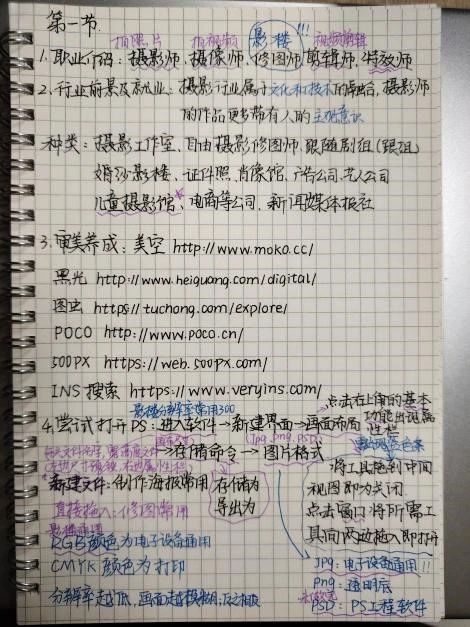 第一节.
拍照片 拍视频 影楼!!! 视频剪辑
1. 职业介绍：摄影师、摄像师、修图师、剪辑师、特效师
2. 行业前景及就业：摄影行业属于文化和技术的融合，摄影师
的作品更多带有人的主观意识
种类：摄影工作室、自由摄影修图师、跟随剧组(跟组)
婚纱影楼、证件照、肖像馆、广告公司、艺人公司
儿童摄影馆、电商等公司、新闻媒体报社
3. 审美养成：美空 http://www.moko.cc/
黑光 http://www.heiguang.com/digital/
图虫 https://tuchong.com/explore/
POCO http://www.poco.cn/
500PX https://web.500px.com/
INS 搜索 https://www.veryins.com/
影楼分辨率常用300
点击右上角的基本
4. 尝试打开PS：进入软件→新建界面→画面布局
功能出现属
性栏
(Jpg. Png. PSD)
→存储命令→图片格式
新建文件：制作海报常用
存储为
导出为
直接拖入：修图常用
将工具拖到中间
视图即为关闭
点击窗口将所需工
具向两边拖入即打开
RGB颜色为电子设备通用
CMYK颜色为打印
分辨率越低，画面越模糊，反之相反
Jpg：电子设备通用!!
Png：透明底
PSD：PS工程软件